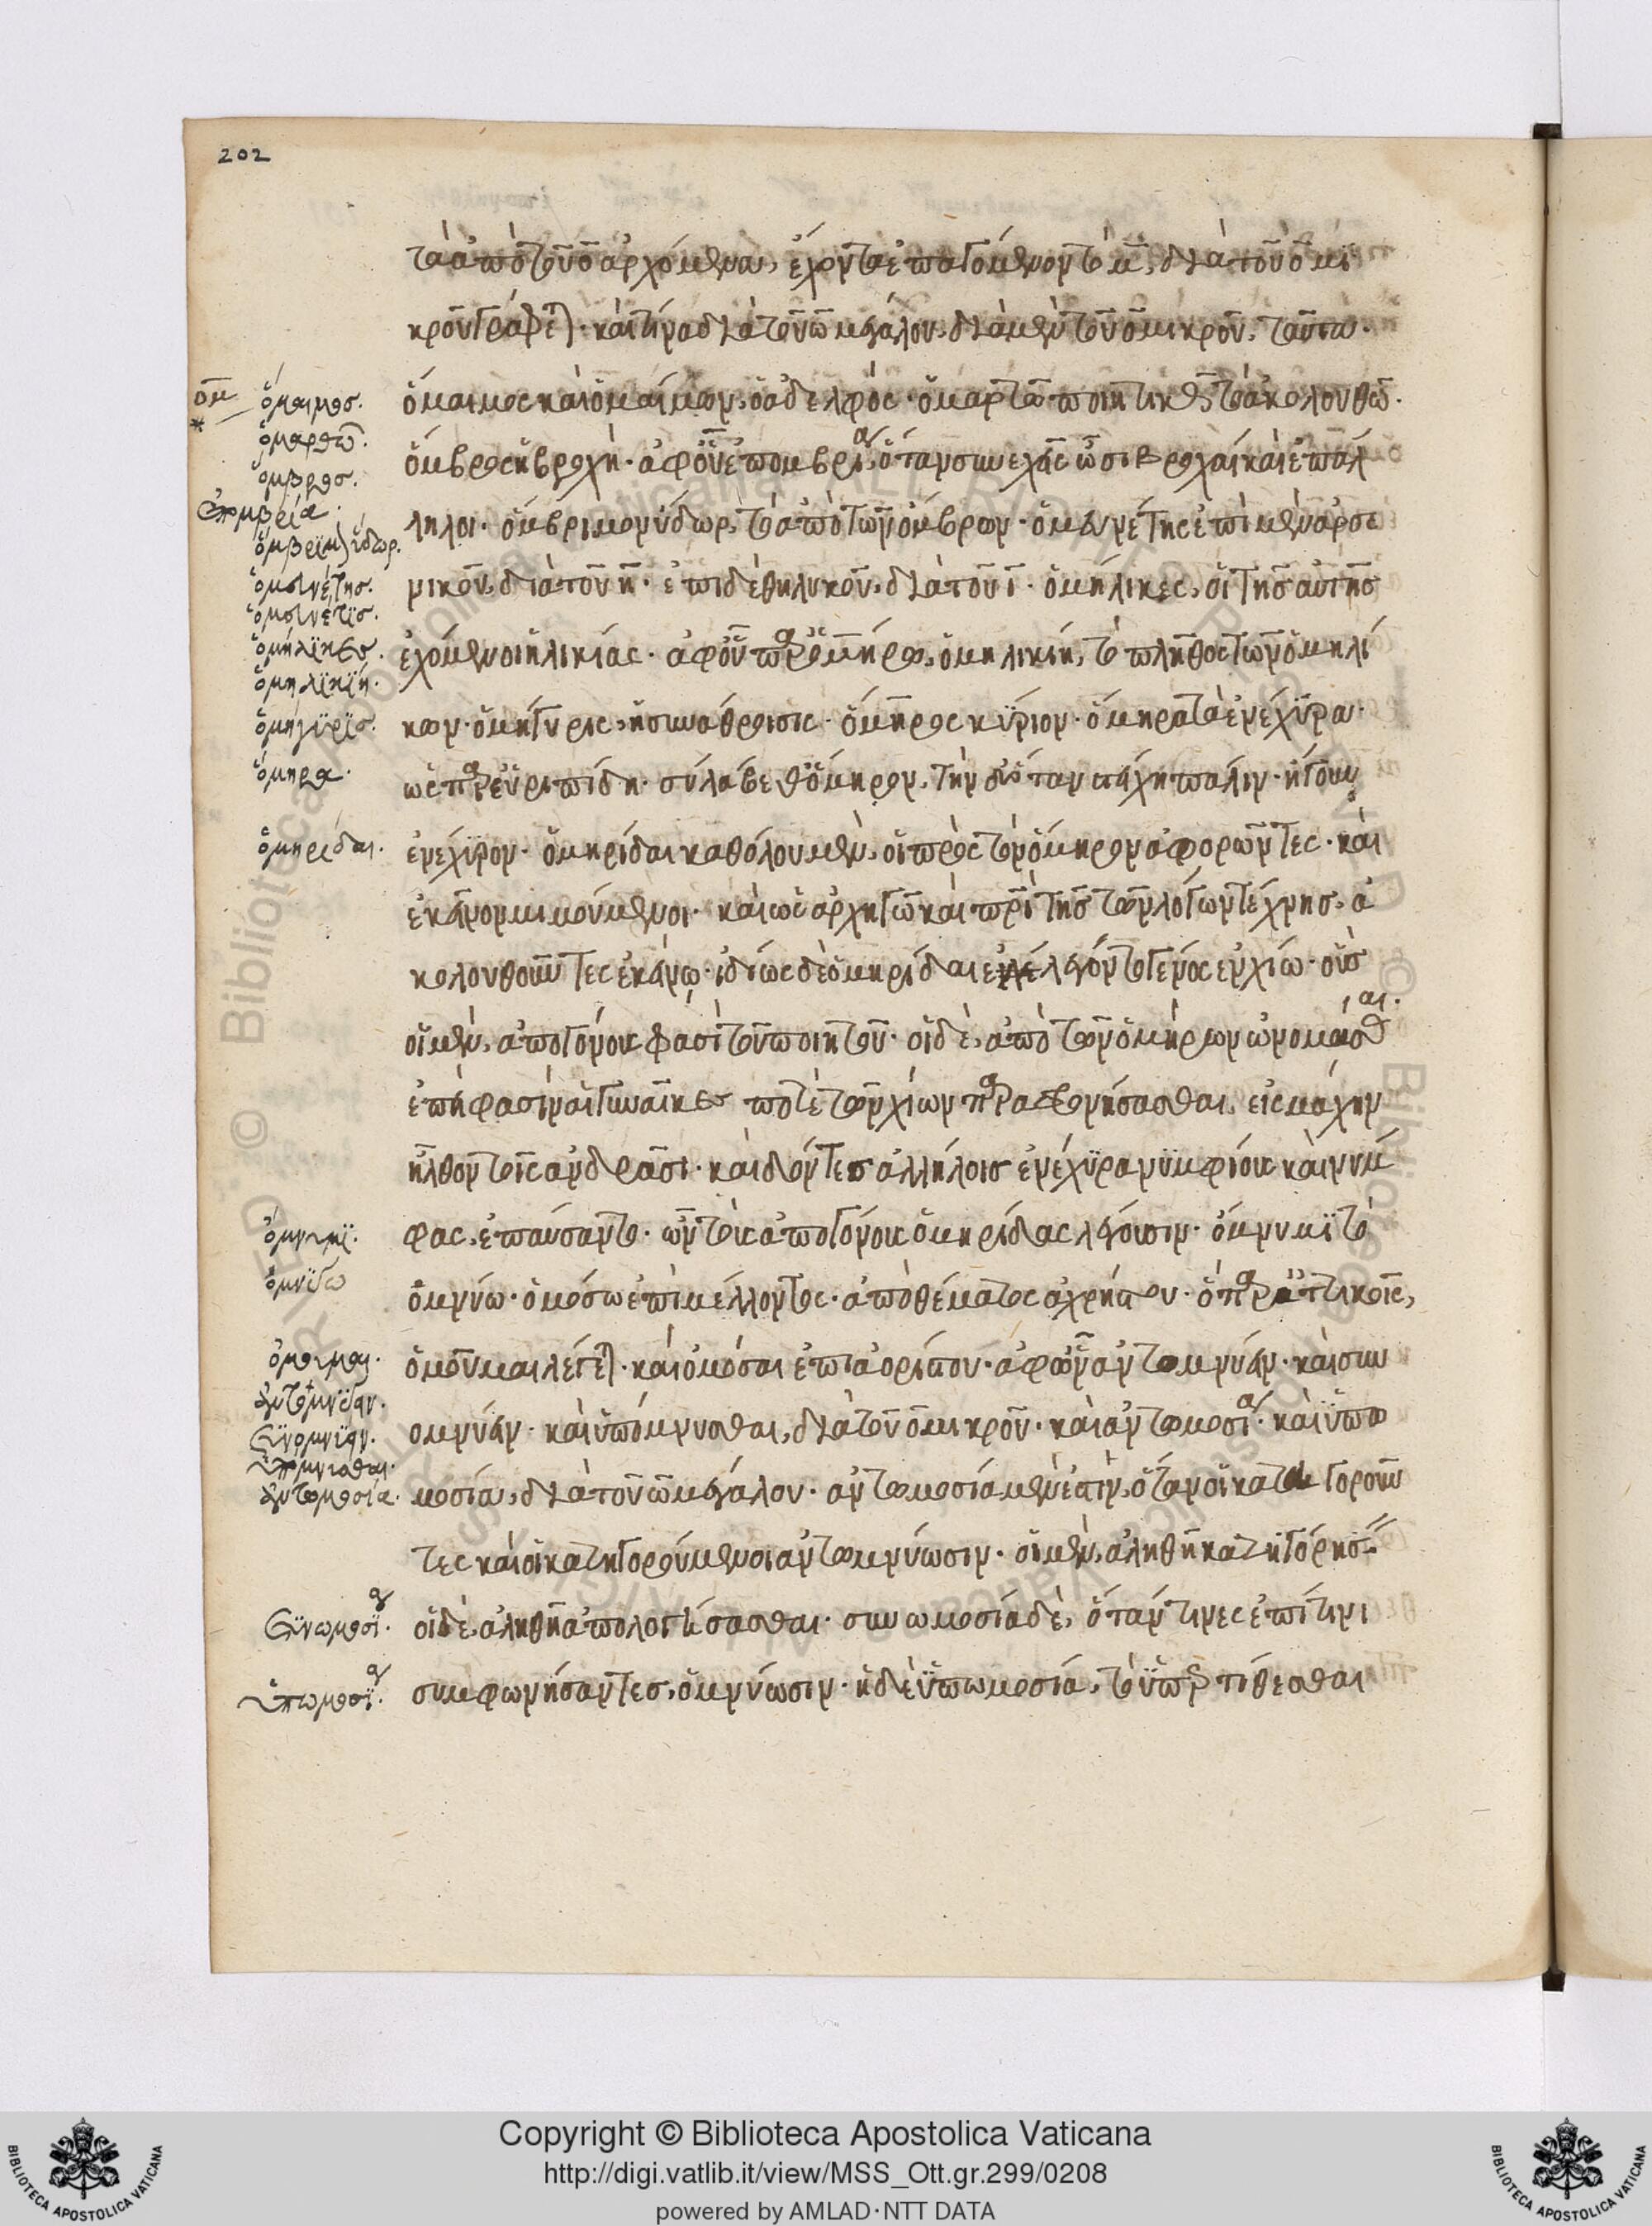 202
τὰ ἀπὸ τοῦ ο ἀρχόμενα, ἔχοντα ἐπαγόμενον τὸ μ, διὰ τοῦ ο μι
κροῦ γράφεται. καί τινα διὰ τοῦ ω μεγάλου. διὰ μὲν τοῦ ο μικροῦ, ταῦτα.
ὅμαιμος καὶ ὁμαίμων, ὁ ἀδελφός. ὁμαρτῶ ποιητικῶς, τὸ ἀκολουθῶ.
ὄμβρος ἡ βροχή. ἀφ' οὗ ἐπομβρία, ὅταν συνεχεῖς ὦσι βροχαὶ καὶ ἐπάλ
ληλοι. ὄμβριμον ὕδωρ, τὸ ἀπὸ τῶν ὄμβρων. ὁμευνέτης ἐπὶ μὲν ἀρσε
νικοῦ, διὰ τοῦ η. ἐπὶ δὲ θηλυκοῦ, διὰ τοῦ ι. ὁμήλικες, οἱ τῆς αὐτῆς
ἐχόμενοι ἡλικίας. ἀφ' οὗ παρ' ὁμήρω, ὁμηλικίη, τὸ πλῆθος τῶν ὁμηλί
κων. ὁμήγυρις, ἡ συνάθροισις. ὅμηρος κύριον. ὅμηρα τὰ ἐνέχυρα.
ὡς παρ' εὐριπίδη. σύλαβε θ' ὅμηρον, τήνδ' ὅταν στείχη πάλιν. ἤγουν
ἐνέχυρον. ὁμηρίδαι καθόλου μὲν, οἱ πρὸς τὸν ὅμηρον ἀφορῶντες. καὶ
ἐκεῖνον μιμούμενοι. καὶ ὡς ἀρχηγῶ καὶ πατρὶ τῆς τῶν λόγων τέχνης, ἀ
κολουθοῦντες ἐκείνω. ἰδίως δὲ ὁμηρίδαι ἐλέγοντο γένος ἐν χίω. οὓς
οἱ μὲν, ἀπογόνους φασὶ τοῦ ποιητοῦ. οἱ δὲ, ἀπὸ τῶν ὁμήρων ὠνομάσθαι.
ἐπεί φασιν αἱ γυναῖκες ποτὲ τῶν χίων παραφρονήσασθαι, εἰς μάχην
ἦλθον τοῖς ἀνδράσι. καὶ δόντες ἀλλήλοις ἐνέχυρα νυμφίους καὶ νύμ
φας, ἐπαύσαντο. ὧν τοὺς ἀπογόνους ὁμηρίδας λέγουσιν. ὄμνυμι τὸ
ὀμνύω. ὀμόσω ἐπὶ μέλλοντος. ἀπὸ θέματος ἀχρήστου. ὃ παρ' ἀττικοῖς,
ὀμοῦμαι λέγεται. καὶ ὀμόσαι ἐπὶ ἀορίστου. ἀφ' ὧν ἀντομνύειν. καὶ συν
ομνύειν. καὶ ὑπόμνυσθαι, διὰ τοῦ ο μικροῦ. καὶ ἀντωμοσία. καὶ ὑπω
μοσία, διὰ τοῦ ω μεγάλου. ἀντωμοσία μὲν ἐστὶν, ὅταν οἱ κατηγοροῦν
τες καὶ οἱ κατηγορούμενοι ἀντομνύωσιν. οἱ μὲν, ἀληθῆ κατηγορῆσαι
οἱ δὲ, ἀληθῆ ἀπολογήσασθαι. συνωμοσία δὲ, ὅταν τινες ἐπί τινι
συμφωνήσαντες, ὀμνύωσιν. ἡ δὲ ὑπωμοσία, τὸ ὑπερτίθεσθαι
ομ
ὅμαιμος.
ὁμαρτῶ.
ὄμβρος.
ἐπομβρία.
ὄμβριμον ὕδωρ.
ὁμευνέτης.
ὁμευνέτις.
ὁμήλικες.
ὁμηλικίη.
ὁμήγυρις.
ὅμηρα.
ὁμηρίδαι.
ὄμνυμι.
ὀμνύω
ὀμοῦμαι.
ἀντομνύειν.
συνομνύειν.
ὑπόμνυσθαι.
ἀντωμοσία.
συνωμοσία.
ὑπωμοσία.
© Biblioteca Apostolica Vaticana. ALL RIGHTS RESERVED
Copyright © Biblioteca Apostolica Vaticana
http://digi.vatlib.it/view/MSS_Ott.gr.299/0208
powered by AMLAD·NTT DATA
BIBLIOTECA APOSTOLICA VATICANA
BIBLIOTECA APOSTOLICA VATICANA